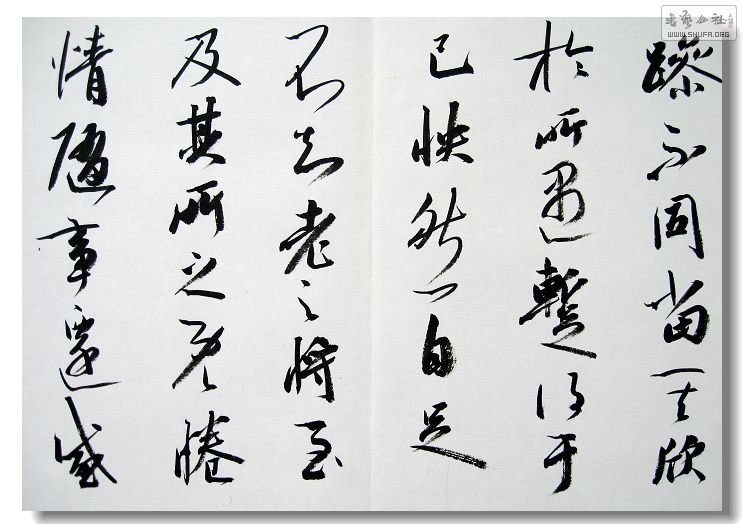 躁不同當其欣
於所遇暫得于
己怏然自足
不知老之將至
及其所之既惓
情隨事遷感
书艺公社
WWW.SHUFA.ORG